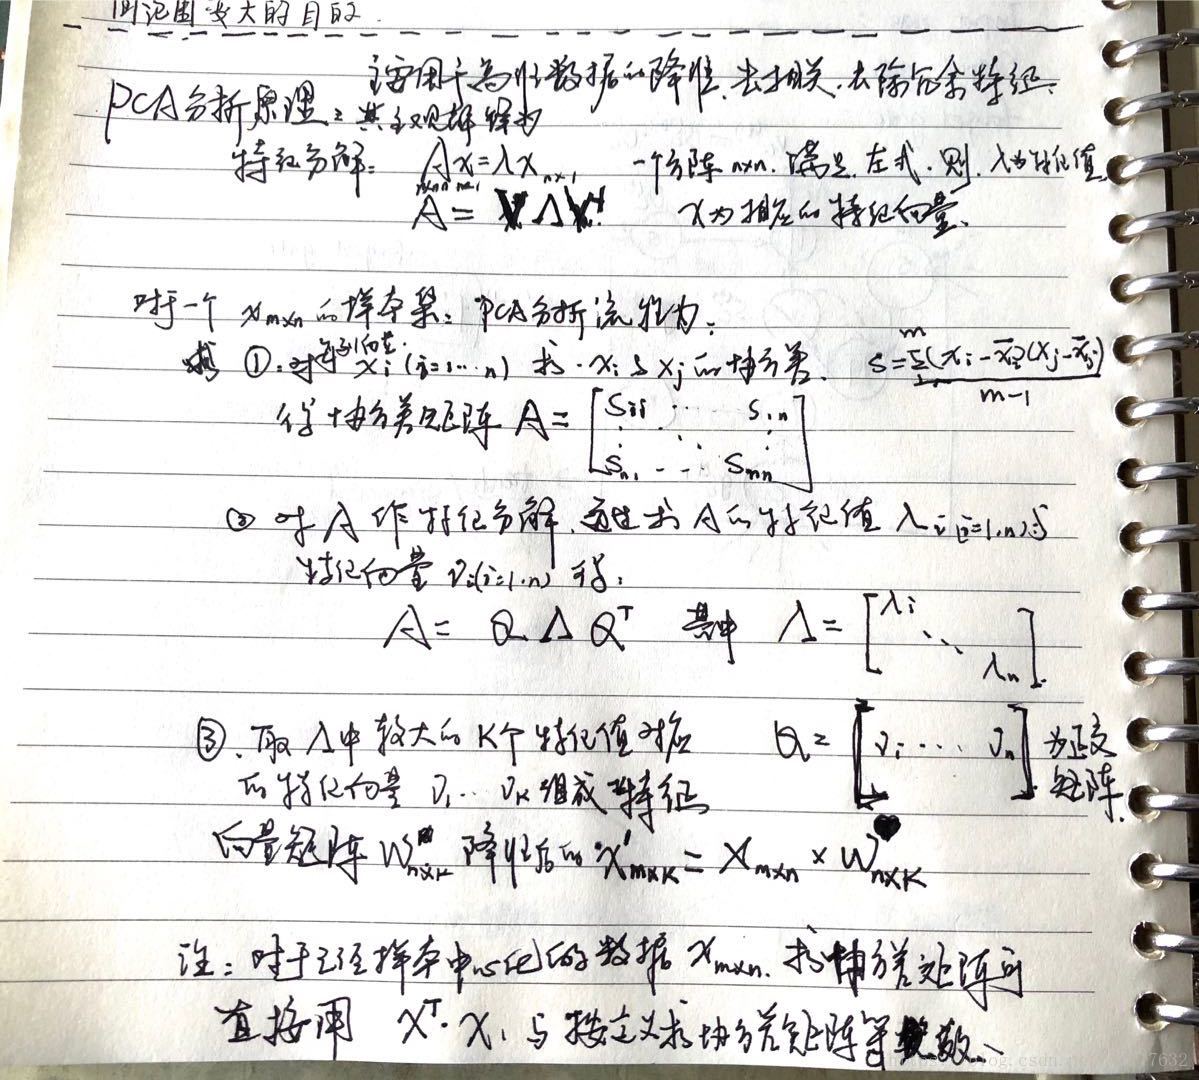 围变大的目的.
主要用于高维数据的降维、去相关、去除冗余特征.
PCA分析原理: 其主观解释为
特征分解: Ax=λx n×1 一个方阵 n×n. 满足左式. 则. λ为特征值,
n×n n×1
A = V Λ V⁻¹ x为相应的特征向量.
对于一个 x m×n 的样本集: PCA分析流程为:
每列向量.
①. 对 xi (i=1...n) 求. xi 与 xj 的协方差. S = Σ(xi-x̄i)(xj-x̄j) / m-1
得协方差矩阵 A = [Sii ... Sin ... Sn1 ... Snn]
② 对 A 作特征分解, 通过求 A 的特征值 λi (i=1,n)与
特征向量 νi(i=1·n) 得:
A = Q Λ Qᵀ 其中 Λ = [λi ⋱ λn]
③. 取 Λ 中较大的 K个特征值对应 Q = [νi ... νn] 为正交
的特征向量 ν1... νk 组成特征 矩阵.
向量矩阵 W n×K 降维后的 X' m×K = X m×n × W n×K
注: 对于已经样本中心化的数据 X m×n. 求协方差矩阵可
直接用 Xᵀ·X, 与按定义求协方差矩阵等效.